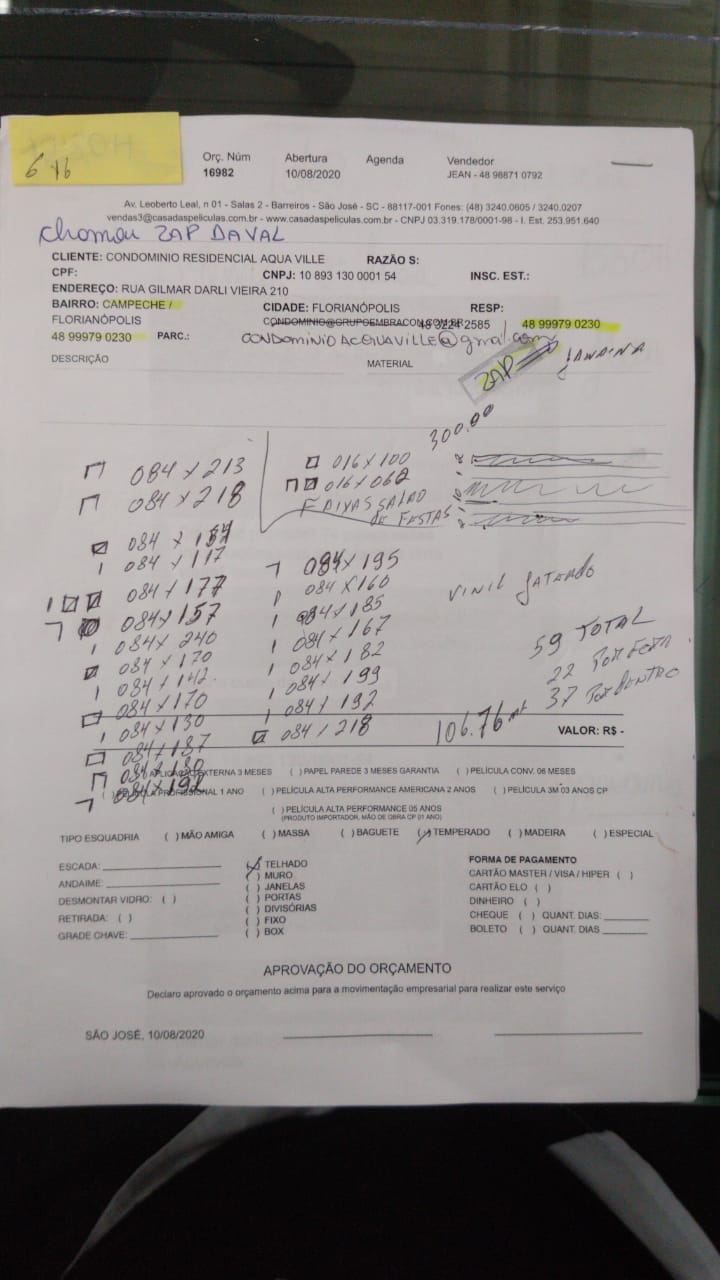 6 x 6
Orç. Núm Abertura Agenda Vendedor
16982 10/08/2020 JEAN - 48 98871 0792
Av. Leoberto Leal, n 01 - Salas 2 - Barreiros - São José - SC - 88117-001 Fones: (48) 3240.0605 / 3240.0207
vendas3@casadaspeliculas.com.br - www.casadaspeliculas.com.br - CNPJ 03.319.178/0001-98 - I. Est. 253.951.640
chamou ZAP DAVAL
CLIENTE: CONDOMINIO RESIDENCIAL AQUA VILLE RAZÃO S:
CPF: CNPJ: 10 893 130 0001 54 INSC. EST.:
ENDEREÇO: RUA GILMAR DARLI VIEIRA 210
BAIRRO: CAMPECHE / CIDADE: FLORIANÓPOLIS RESP:
FLORIANÓPOLIS CONDOMINIO@GRUPOEMBRACON.COM.BR 48 3224 2585 48 99979 0230
48 99979 0230 PARC.: CONDOMINIOACQUAVILLE@gmail.com
DESCRIÇÃO MATERIAL ZAP JANAINA
300,00
084 x 213 016 x 100
084 x 218 016 x 062
FAIXAS SALÃO
DE FESTAS
084 x 154
084 x 117 084 x 195
084 x 177 084 x 160
VINIL JATEADO
084 x 157 084 x 185
084 x 240 084 x 167
59 TOTAL
084 x 170 084 x 182
22 POR FORA
084 x 142 084 x 199
37 POR DENTRO
084 x 170 084 x 192
084 x 130 084 x 218 106.76 mt VALOR: R$ -
084 x 187
084 x 180
084 x 192
APLICAÇÃO EXTERNA 3 MESES ( ) PAPEL PAREDE 3 MESES GARANTIA ( ) PELÍCULA CONV. 06 MESES
( ) PELÍCULA PROFISSIONAL 1 ANO ( ) PELÍCULA ALTA PERFORMANCE AMERICANA 2 ANOS ( ) PELÍCULA 3M 03 ANOS CP
( ) PELÍCULA ALTA PERFORMANCE 05 ANOS
(PRODUTO IMPORTADOR, MÃO DE OBRA CP 01 ANO)
TIPO ESQUADRIA ( ) MÃO AMIGA ( ) MASSA ( ) BAGUETE (✓) TEMPERADO ( ) MADEIRA ( ) ESPECIAL
ESCADA: (✓) TELHADO FORMA DE PAGAMENTO
( ) MURO CARTÃO MASTER / VISA / HIPER ( )
ANDAIME: ( ) JANELAS CARTÃO ELO ( )
DESMONTAR VIDRO: ( ) ( ) PORTAS DINHEIRO ( )
( ) DIVISÓRIAS CHEQUE ( ) QUANT. DIAS:
RETIRADA: ( ) ( ) FIXO BOLETO ( ) QUANT. DIAS
GRADE CHAVE: ( ) BOX
APROVAÇÃO DO ORÇAMENTO
Declaro aprovado o orçamento acima para a movimentação empresarial para realizar este serviço
SÃO JOSÉ, 10/08/2020